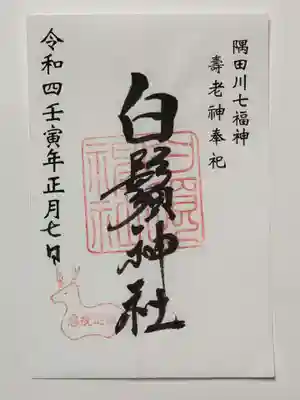 隅田川七福神
壽老神奉祀
白鬚神社
令和四壬寅年正月七日